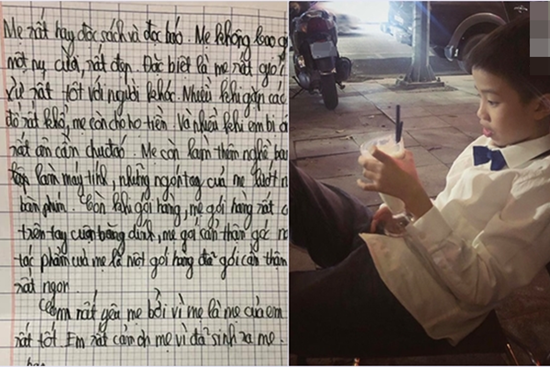 Mẹ rất hay đọc sách và đọc báo. Mẹ không bao g
một nụ cười, rất đẹp. Đặc biệt là mẹ rất giỏ
xử rất tốt với người khác. Nhiều khi gặp các
đó rất khổ, mẹ còn cho họ tiền. Và nhiều khi em bị
rất ân cần chu đáo. Mẹ còn làm thêm nghề bá
làm máy tính, những ngón tay của mẹ lướt n
bàn phím. Còn khi gói hàng, mẹ gói hàng rất c
trên tay cuộn băng dính, mẹ gói cẩn thận góc
tác phẩm của mẹ là một gói hàng đã gói cẩn thận
rất ngon.
Em rất yêu mẹ bởi vì mẹ là mẹ của em
rất tốt. Em rất cảm ơn mẹ vì đã sinh ra mẹ.